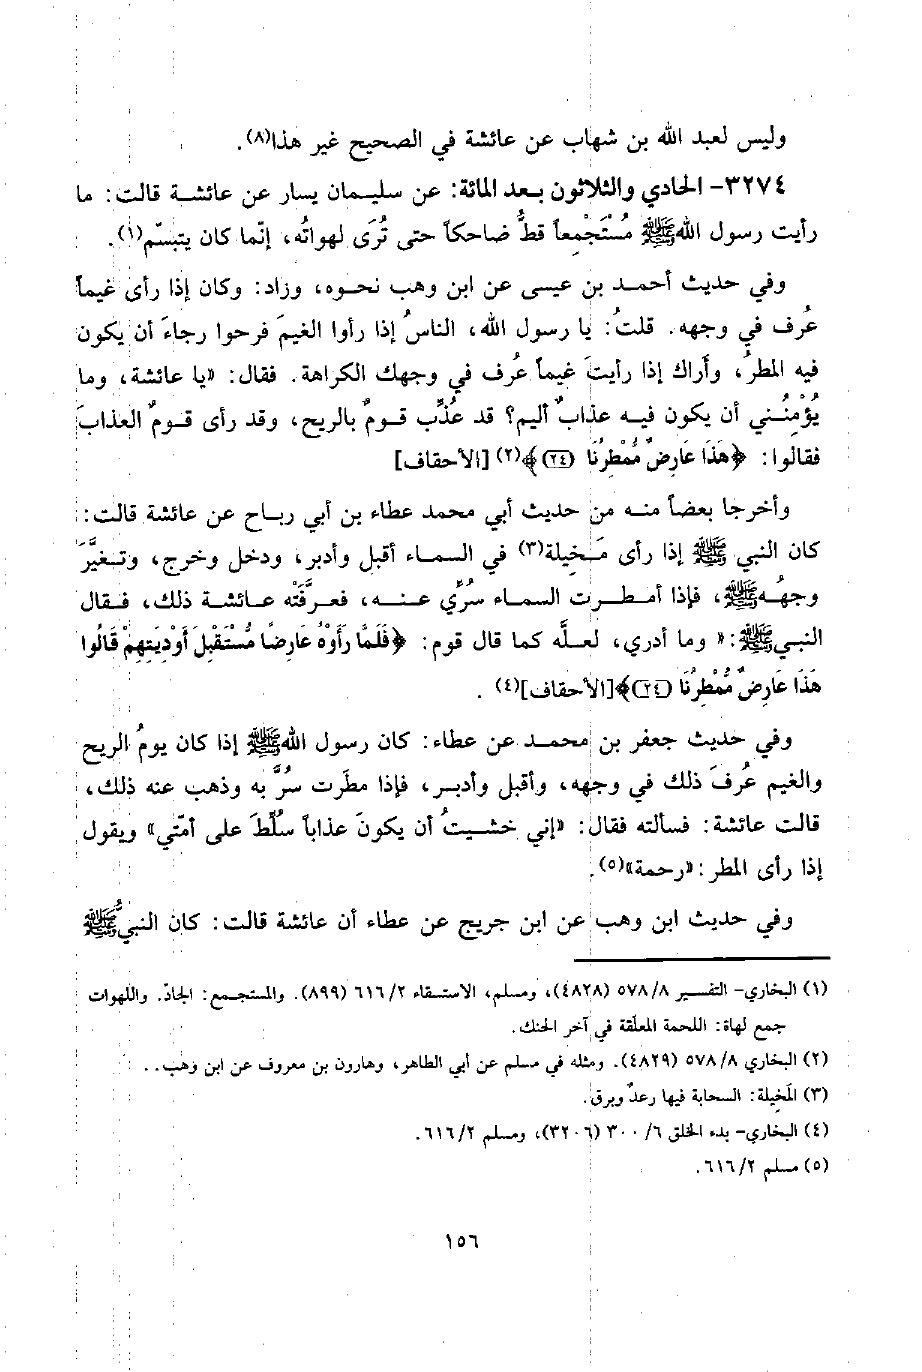 وليس لعبد الله بن شهاب عن عائشة في الصحيح غير هذا(٨).
٣٢٧٤- الحادي والثلاثون بعد المائة: عن سليمان يسار عن عائشة قالت: ما
رأيت رسول الله ﷺ مُسْتَجْمِعاً قطُّ ضاحكاً حتى تُرَى لهواتُه، إنّما كان يتبسّم(١).
وفي حديث أحمد بن عيسى عن ابن وهب نحوه، وزاد: وكان إذا رأى غيماً
عُرف في وجهه. قلتُ: يا رسول الله، الناسُ إذا رأوا الغيمَ فرحوا رجاءَ أن يكون
فيه المطرُ، وأراك إذا رأيتَ غيماً عُرف في وجهك الكراهة. فقال: «يا عائشة، وما
يُؤْمِنُني أن يكون فيه عذابٌ أليم؟ قد عُذِّب قومٌ بالريح، وقد رأى قومٌ العذابَ
فقالوا: ﴿هَذَا عَارِضٌ مُّمْطِرُنَا (٢٤)﴾(٢) [الأحقاف]
وأخرجا بعضاً منه من حديث أبي محمد عطاء بن أبي رباح عن عائشة قالت:
كان النبي ﷺ إذا رأى مَخيلة(٣) في السماء أقبل وأدبر، ودخل وخرج، وتغيَّرَ
وجهُه ﷺ، فإذا أمطرت السماء سُرِّي عنه، فعرَّفَتْه عائشة ذلك، فقال
النبي ﷺ: «وما أدري، لعلَّه كما قال قوم: ﴿فَلَمَّا رَأَوْهُ عَارِضًا مُّسْتَقْبِلَ أَوْدِيَتِهِمْ قَالُوا
هَذَا عَارِضٌ مُّمْطِرُنَا (٢٤)﴾[الأحقاف](٤) .
وفي حديث جعفر بن محمد عن عطاء: كان رسول الله ﷺ إذا كان يومُ الريح
والغيم عُرفَ ذلك في وجهه، وأقبل وأدبر، فإذا مطَرت سُرَّ به وذهب عنه ذلك،
قالت عائشة: فسألته فقال: «إني خشيتُ أن يكونَ عذاباً سُلِّطَ على أمّتي» ويقول
إذا رأى المطر: «رحمة»(٥).
وفي حديث ابن وهب عن ابن جريج عن عطاء أن عائشة قالت: كان النبيُّ ﷺ
(١) البخاري- التفسير ٥٧٨/٨ (٤٨٢٨)، ومسلم، الاستسقاء ٦١٦/٢ (٨٩٩). والمستجمع: الجادّ. واللهوات
جمع لهاة: اللحمة المعلّقة في آخر الحنك.
(٢) البخاري ٥٧٨/٨ (٤٨٢٩). ومثله في مسلم عن أبي الطاهر، وهارون بن معروف عن ابن وهب..
(٣) المَخِيلة: السحابة فيها رعدٌ وبرق.
(٤) البخاري- بدء الخلق ٣٠٠/٦ (٣٢٠٦)، ومسلم ٦١٦/٢.
(٥) مسلم ٦١٦/٢.
١٥٦